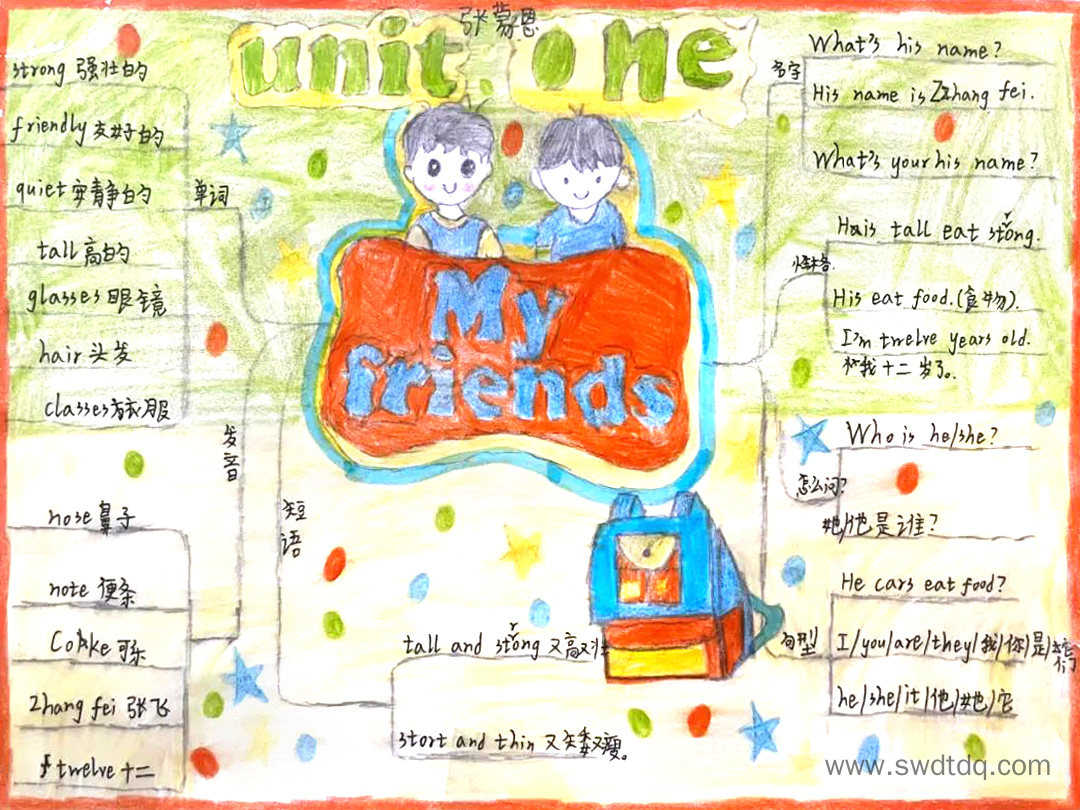 张蒙恩
unit one
My
friends
strong 强壮的
friendly 友好的
quiet 安静的
tall 高的
glasses 眼镜
hair 头发
classes 衣服
单词
发音
nose 鼻子
note 便条
Coke 可乐
Zhang fei 张飞
twelve 十二
短语
tall and strong 又高又壮
stort and thin 又矮又瘦。
名字
What's his name?
His name is Zhang fei.
What's your his name?
性格
Hais tall eat strong.
His eat food.(食物).
I'm twelve years old.
我十二岁了。
怎么问?
Who is he/she?
她/他是谁?
句型
He cars eat food?
I/you/are/they/我/你/是/它们
he/she/it/他/她/它
www.swdtdq.com